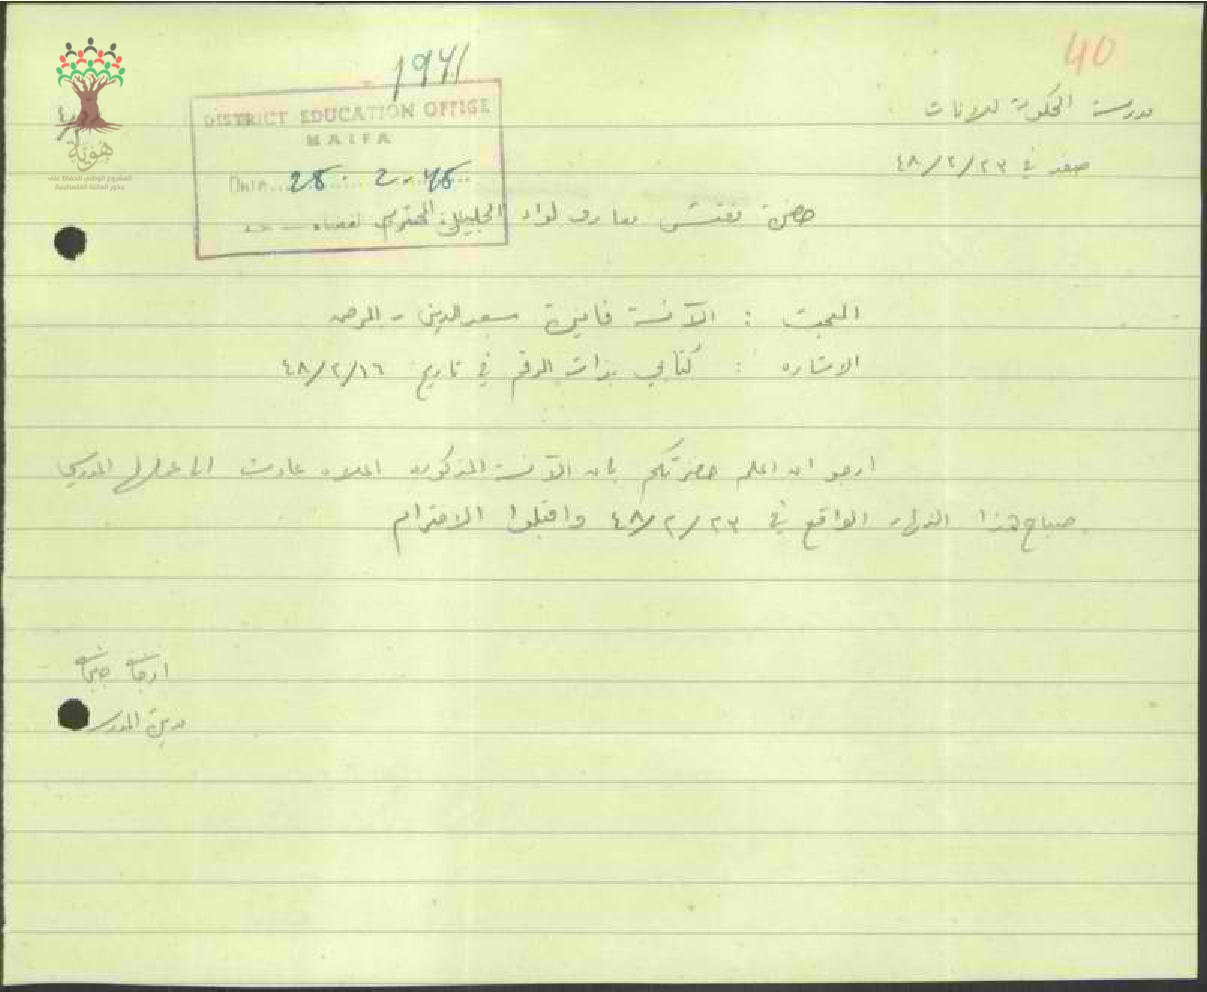 40
1941
مدرسة الحكومة للانات
صفد في ٤٨/٢/٢٣
DISTRICT EDUCATION OFFICE
HAIFA
DATE 28. 2. 48
حضرة مفتش معارف لواء الجليل المحترم
هوية
المشروع الوطني للحفاظ على
جذور العائلة الفلسطينية
البحث : الآنسة فايزة سعد الدين - المرض
الاشاره : كتابي بذات الرقم في تاريخ ٤٨/٢/١٦
ارجو ان اعلم حضرتكم بان الآنسة المذكوره اعلاه عادت الى عملها المدرسي
صباح هذا النهار الواقع في ٤٨/٢/٢٣ واقبلوا الاحترام
مديرة المدرسة